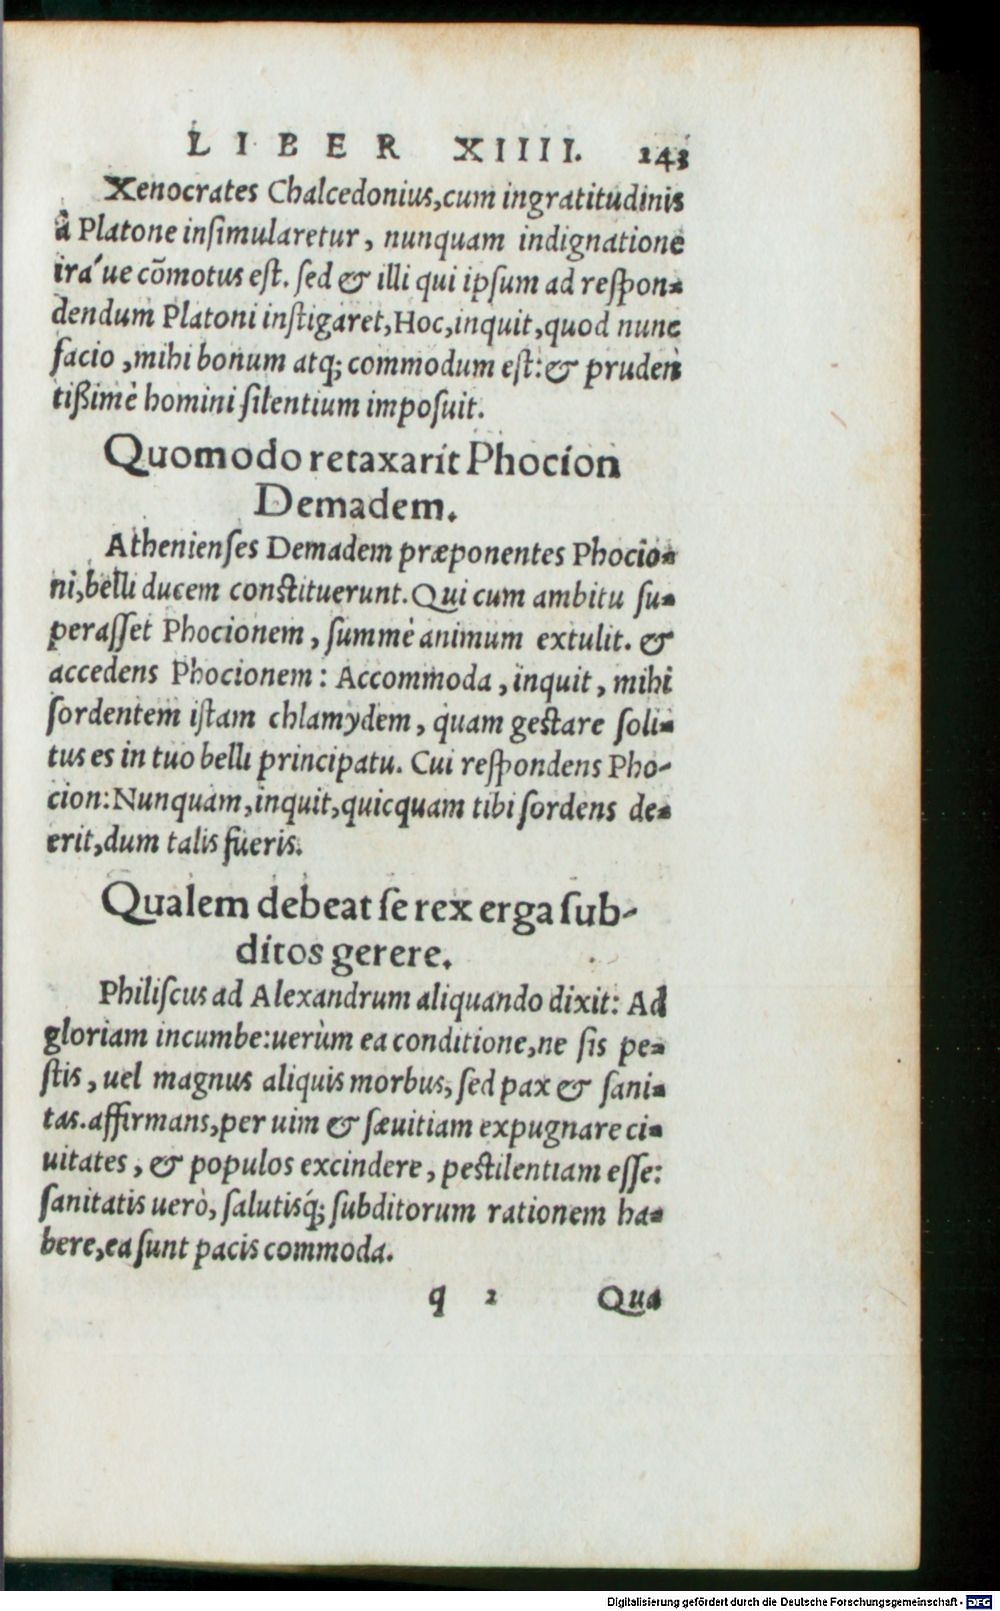 LIBER XIIII. 243
Xenocrates Chalcedonius, cum ingratitudinis
à Platone insimularetur, nunquam indignatione
irá'ue cõmotus est. sed & illi qui ipsum ad respon-
dendum Platoni instigaret, Hoc, inquit, quod nunc
facio, mihi bonum atq; commodum est: & pruden
tißimè homini silentium imposuit.
Quomodo retaxarit Phocion
Demadem.
Athenienses Demadem præponentes Phocio-
ni, belli ducem constituerunt. Qui cum ambitu su-
perasset Phocionem, summè animum extulit. &
accedens Phocionem: Accommoda, inquit, mihi
sordentem istam chlamydem, quam gestare soli-
tus es in tuo belli principatu. Cui respondens Pho-
cion: Nunquam, inquit, quicquam tibi sordens de-
erit, dum talis fueris.
Qualem debeat se rex erga sub-
ditos gerere.
Philiscus ad Alexandrum aliquando dixit: Ad
gloriam incumbe: uerùm ea conditione, ne sis pe-
stis, uel magnus aliquis morbus, sed pax & sani-
tas. affirmans, per uim & sæuitiam expugnare ci-
uitates, & populos excindere, pestilentiam esse:
sanitatis uerò, salutisq́; subditorum rationem ha-
bere, ea sunt pacis commoda.
q 2 Qua
Digitalisierung gefördert durch die Deutsche Forschungsgemeinschaft - DFG